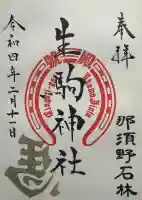 奉拝
生駒神社
令和四年二月十一日
那須野石林